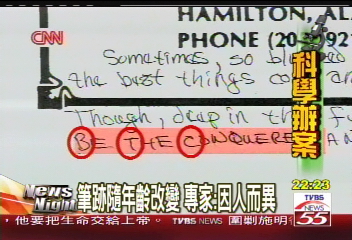 HAMILTON, AL
CNN
PHONE (20 921
Sometimes, so
the best things
Though, deep in the
BE THE CONQUERER AN
科學辦案
News Night
筆跡隨年齡改變 專家:因人而異
22:23
他要把生命交給上帝。 TVBS NEWS 圍剿施明
TVBS NEWS 55